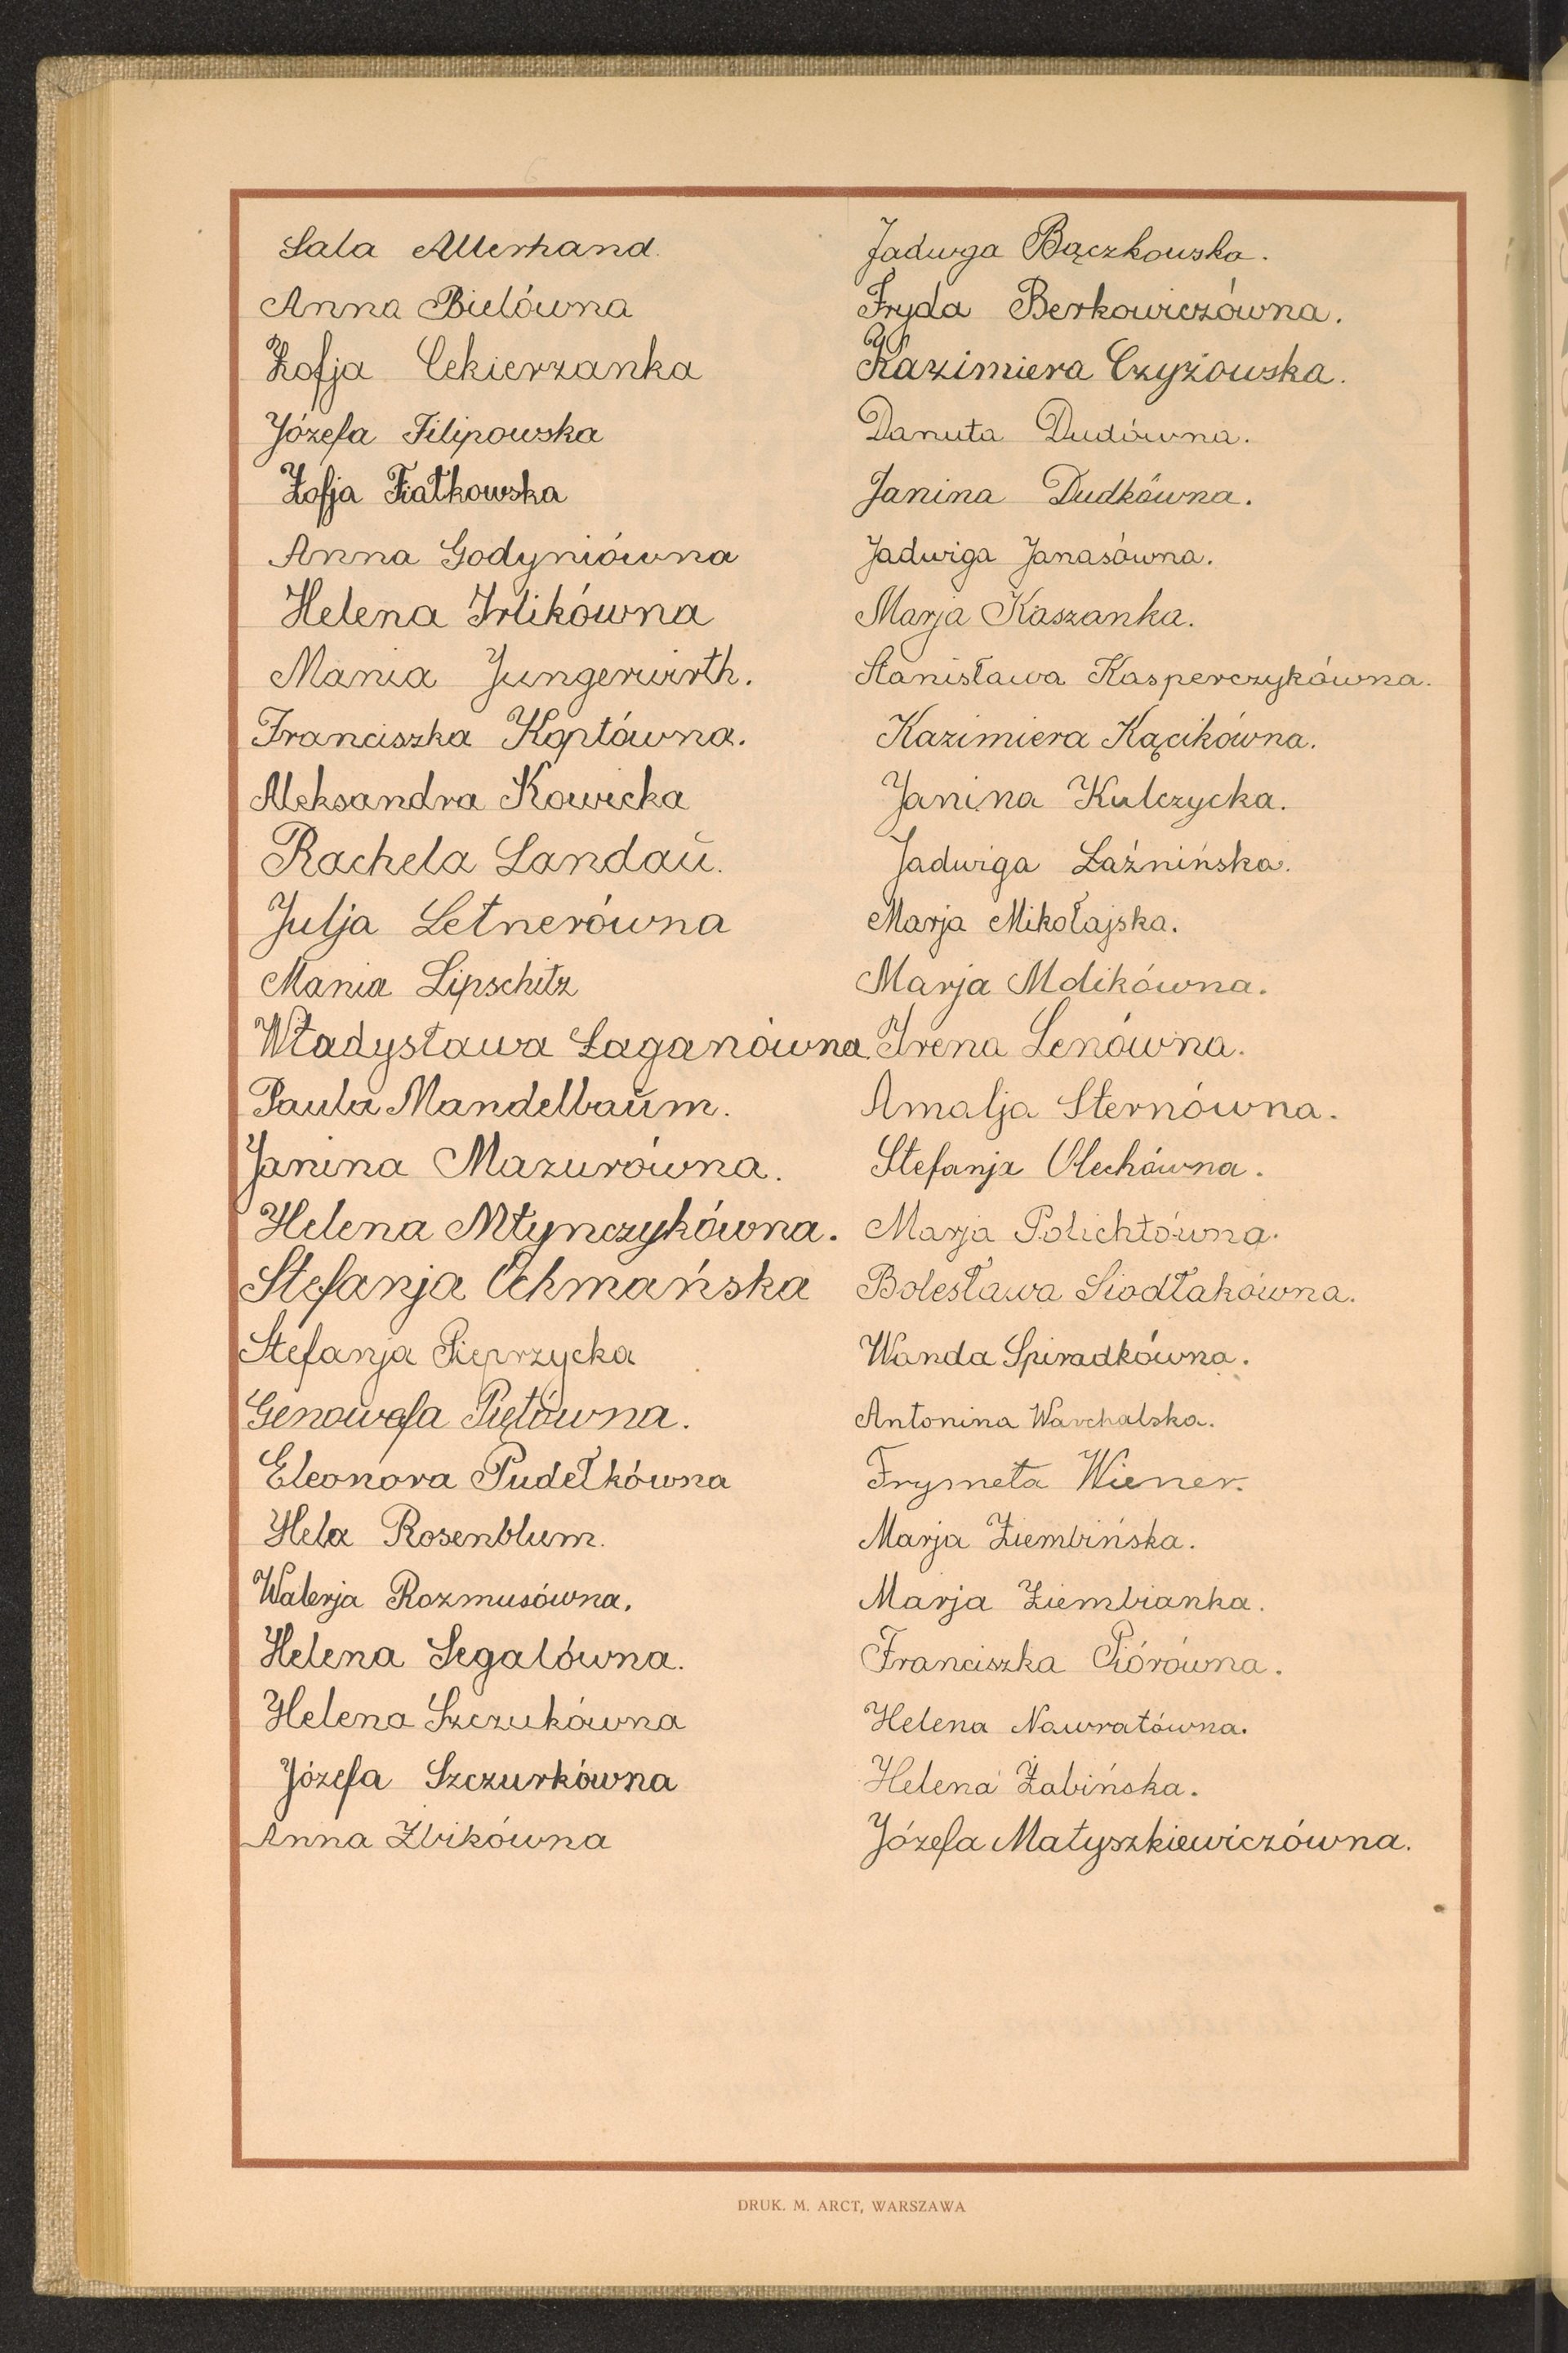 Sala Allerhand.
Anna Bielówna
Zofja Cekierzanka
Józefa Filipowska
Zofja Fiałkowska
Anna Godyniówna
Helena Irlikówna
Mania Jungerwirth.
Franciszka Koptówna.
Aleksandra Kowicka
Rachela Landau.
Julja Letnerówna
Mania Lipschitz
Władysława Łaganówna.
Paula Mandelbaum.
Janina Mazurówna.
Helena Młynczykówna.
Stefanja Ochmańska
Stefanja Pieprzycka
Genowefa Piętówna.
Eleonora Pudełkówna
Hela Rosenblum.
Walerja Rozmusówna.
Helena Segalówna.
Helena Szczukówna
Józefa Szczurkówna
Anna Żbikówna
Jadwiga Bączkowska.
Fryda Berkowiczówna.
Kazimiera Czyżowska.
Danuta Dudówna.
Janina Dudkówna.
Jadwiga Janasówna.
Marja Kaszanka.
Stanisława Kasperczykówna.
Kazimiera Kącikówna.
Janina Kulczycka.
Jadwiga Łaźnińska.
Marja Mikołajska.
Marja Molikówna.
Irena Lenówna.
Amalja Sternówna.
Stefanja Olechówna.
Marja Polichtówna.
Bolesława Siodłakówna.
Wanda Spiradkówna.
Antonina Warchalska.
Frymeta Wiener.
Marja Ziembińska.
Marja Ziembianka.
Franciszka Piórówna.
Helena Nawratówna.
Helena Żabińska.
Józefa Matyszkiewiczówna.
DRUK. M. ARCT, WARSZAWA